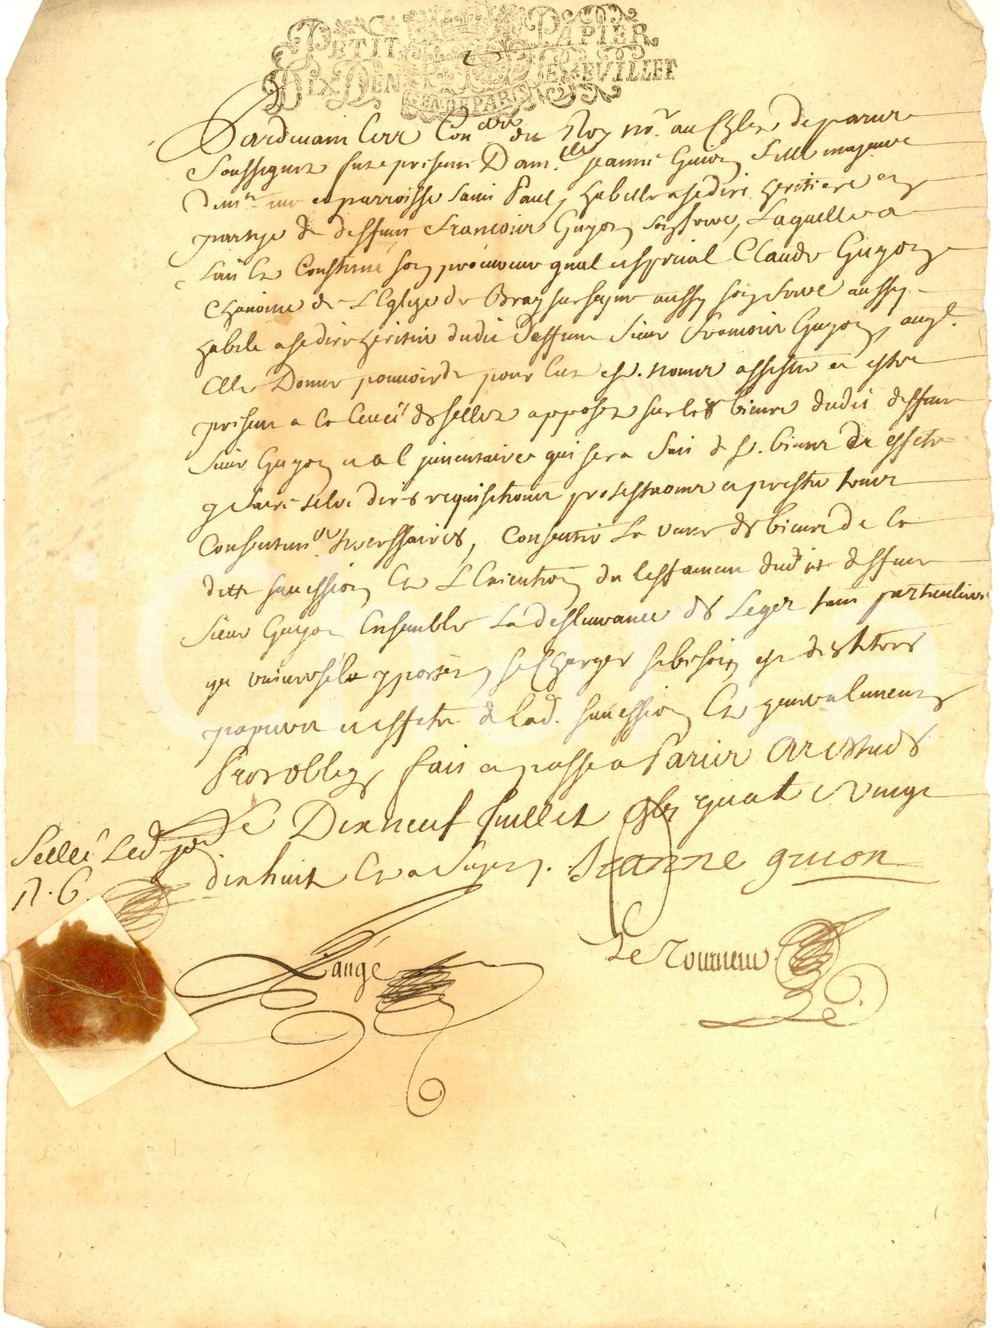 PETIT PAPIER
DIX DEN LE FEUILLET
GEN DE PARIS
Pardevant les Con.ers du Roy no.res au Chlet de paris
Soussignez fut presente Dam.lle Jeanne Guion fille majeure
dem.te rue et parroisse Saint Paul, habille a se dire heritiere en
partye de deffunt Francois Guyon son frere, Laquelle a
fait et Constitué son procureur gnal et special Claude Guyon
chanoine de l'Eglise de Bray sur seyne aussy son frere aussy
habile a se dire heritier dudit deffunt Sieur Francois Guyon, auql.
Elle Donne pouvoir de pour Elle et en s. nom assister et estre
present a la levée des scellez apposez sur les biens dudit deffunt
Sieur Guyon et a l'inventaire qui sera fait de s. biens et effets
y faire tels dires requisitions protestations et prester tous
Consentemens necessaires, Consentir la vente des biens de la
ditte succession et l'Execution du testament dudit deffunt
Sieur Guyon Ensemble la deslivrance des Legs tant particuliers
que universels y portez, se charger sy besoin est des titres
papiers et effets de lad. succession Et generalement
Prosobligt fait et passé a Paris es Estudes
Le Dixneuf Juillet gbj quatre vingt
dixhuit Et a signé. Jeanne guion
Sellé Led. jour
Langé
Le Tourneur